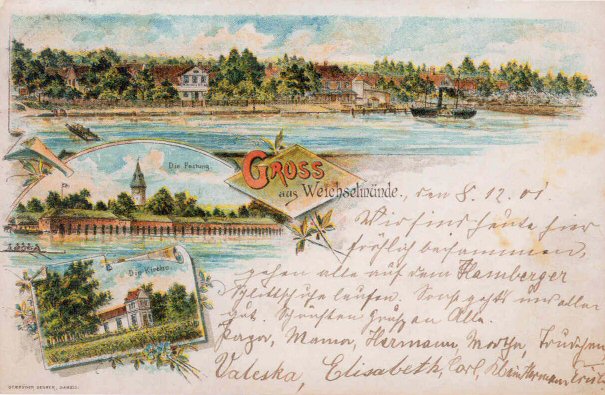 Die Festung.
GROSS
aus Weichselmünde.
Die Kirche
, den 8. 12. 01
Wir sind heute hier
fröhlich beisammen,
gehen alle auf dem Hamberger
Schlittschuhe laufen. Sonst geht uns allen
gut. Schönsten Gruß an Alle.
Mama, Hermann, Martha, Trudchen
Valeska, Elisabeth, Carl,